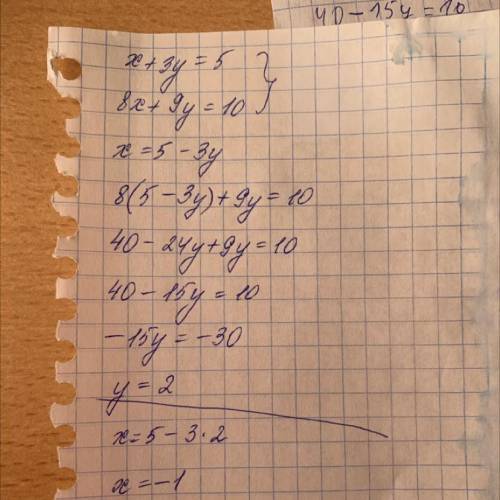 40 - 15y = 10
x + 3y = 5
8x + 9y = 10
x = 5 - 3y
8(5 - 3y) + 9y = 10
40 - 24y + 9y = 10
40 - 15y = 10
-15y = -30
y = 2
x = 5 - 3·2
x = -1